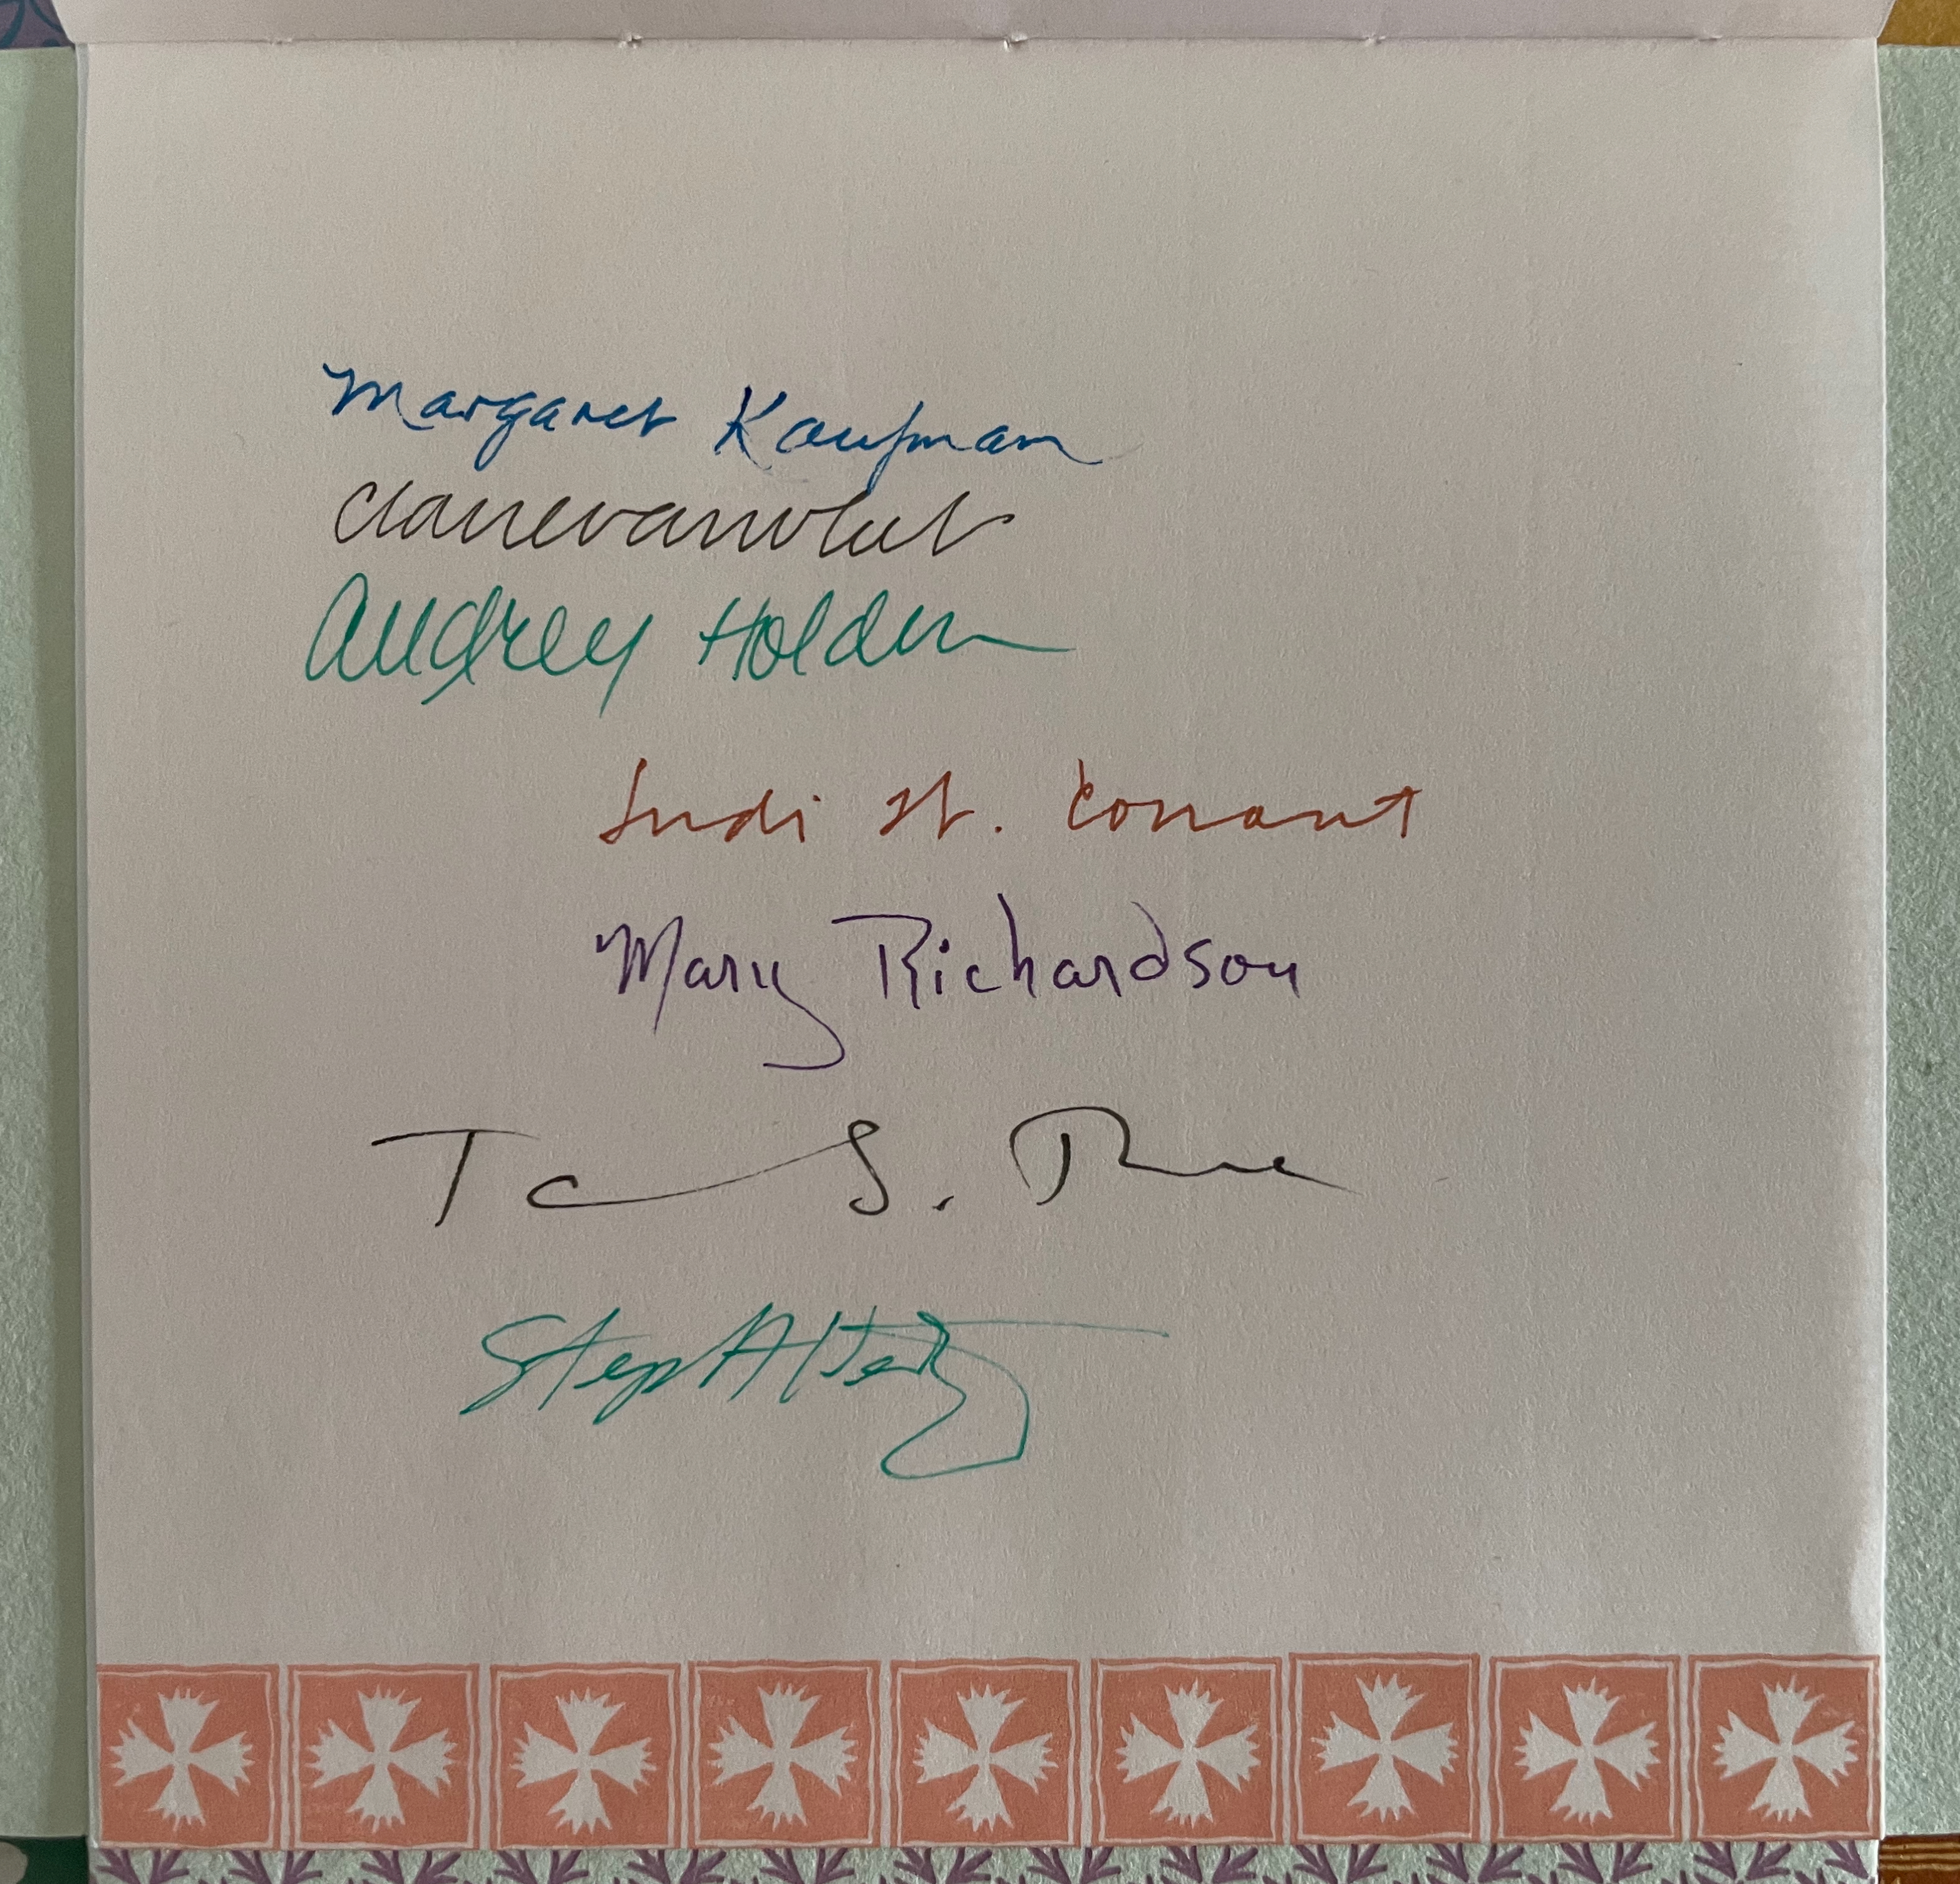 Margaret Kaufman
Clairevanvliet
Audrey Holden
Judi St. Conant
Mary Richardson
S.